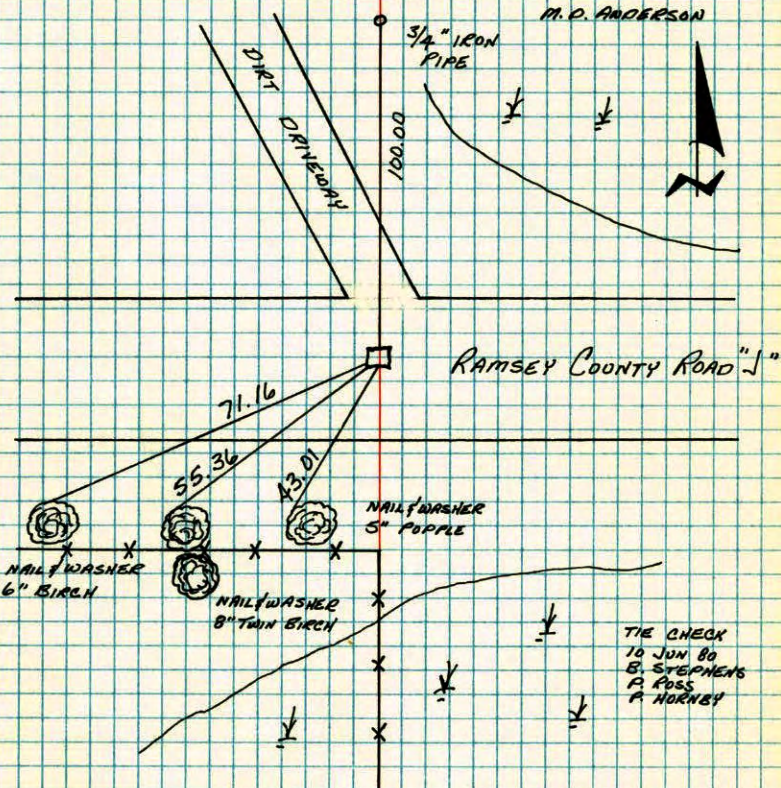 M.D. ANDERSON
3/4" IRON
PIPE
DIRT DRIVEWAY
100.00
RAMSEY COUNTY ROAD "J"
71.16
55.36
43.01
NAIL & WASHER
5" POPPLE
NAIL & WASHER
6" BIRCH
NAIL & WASHER
8" TWIN BIRCH
TIE CHECK
10 JUN 80
B. STEPHENS
P. ROSS
P. HORNBY